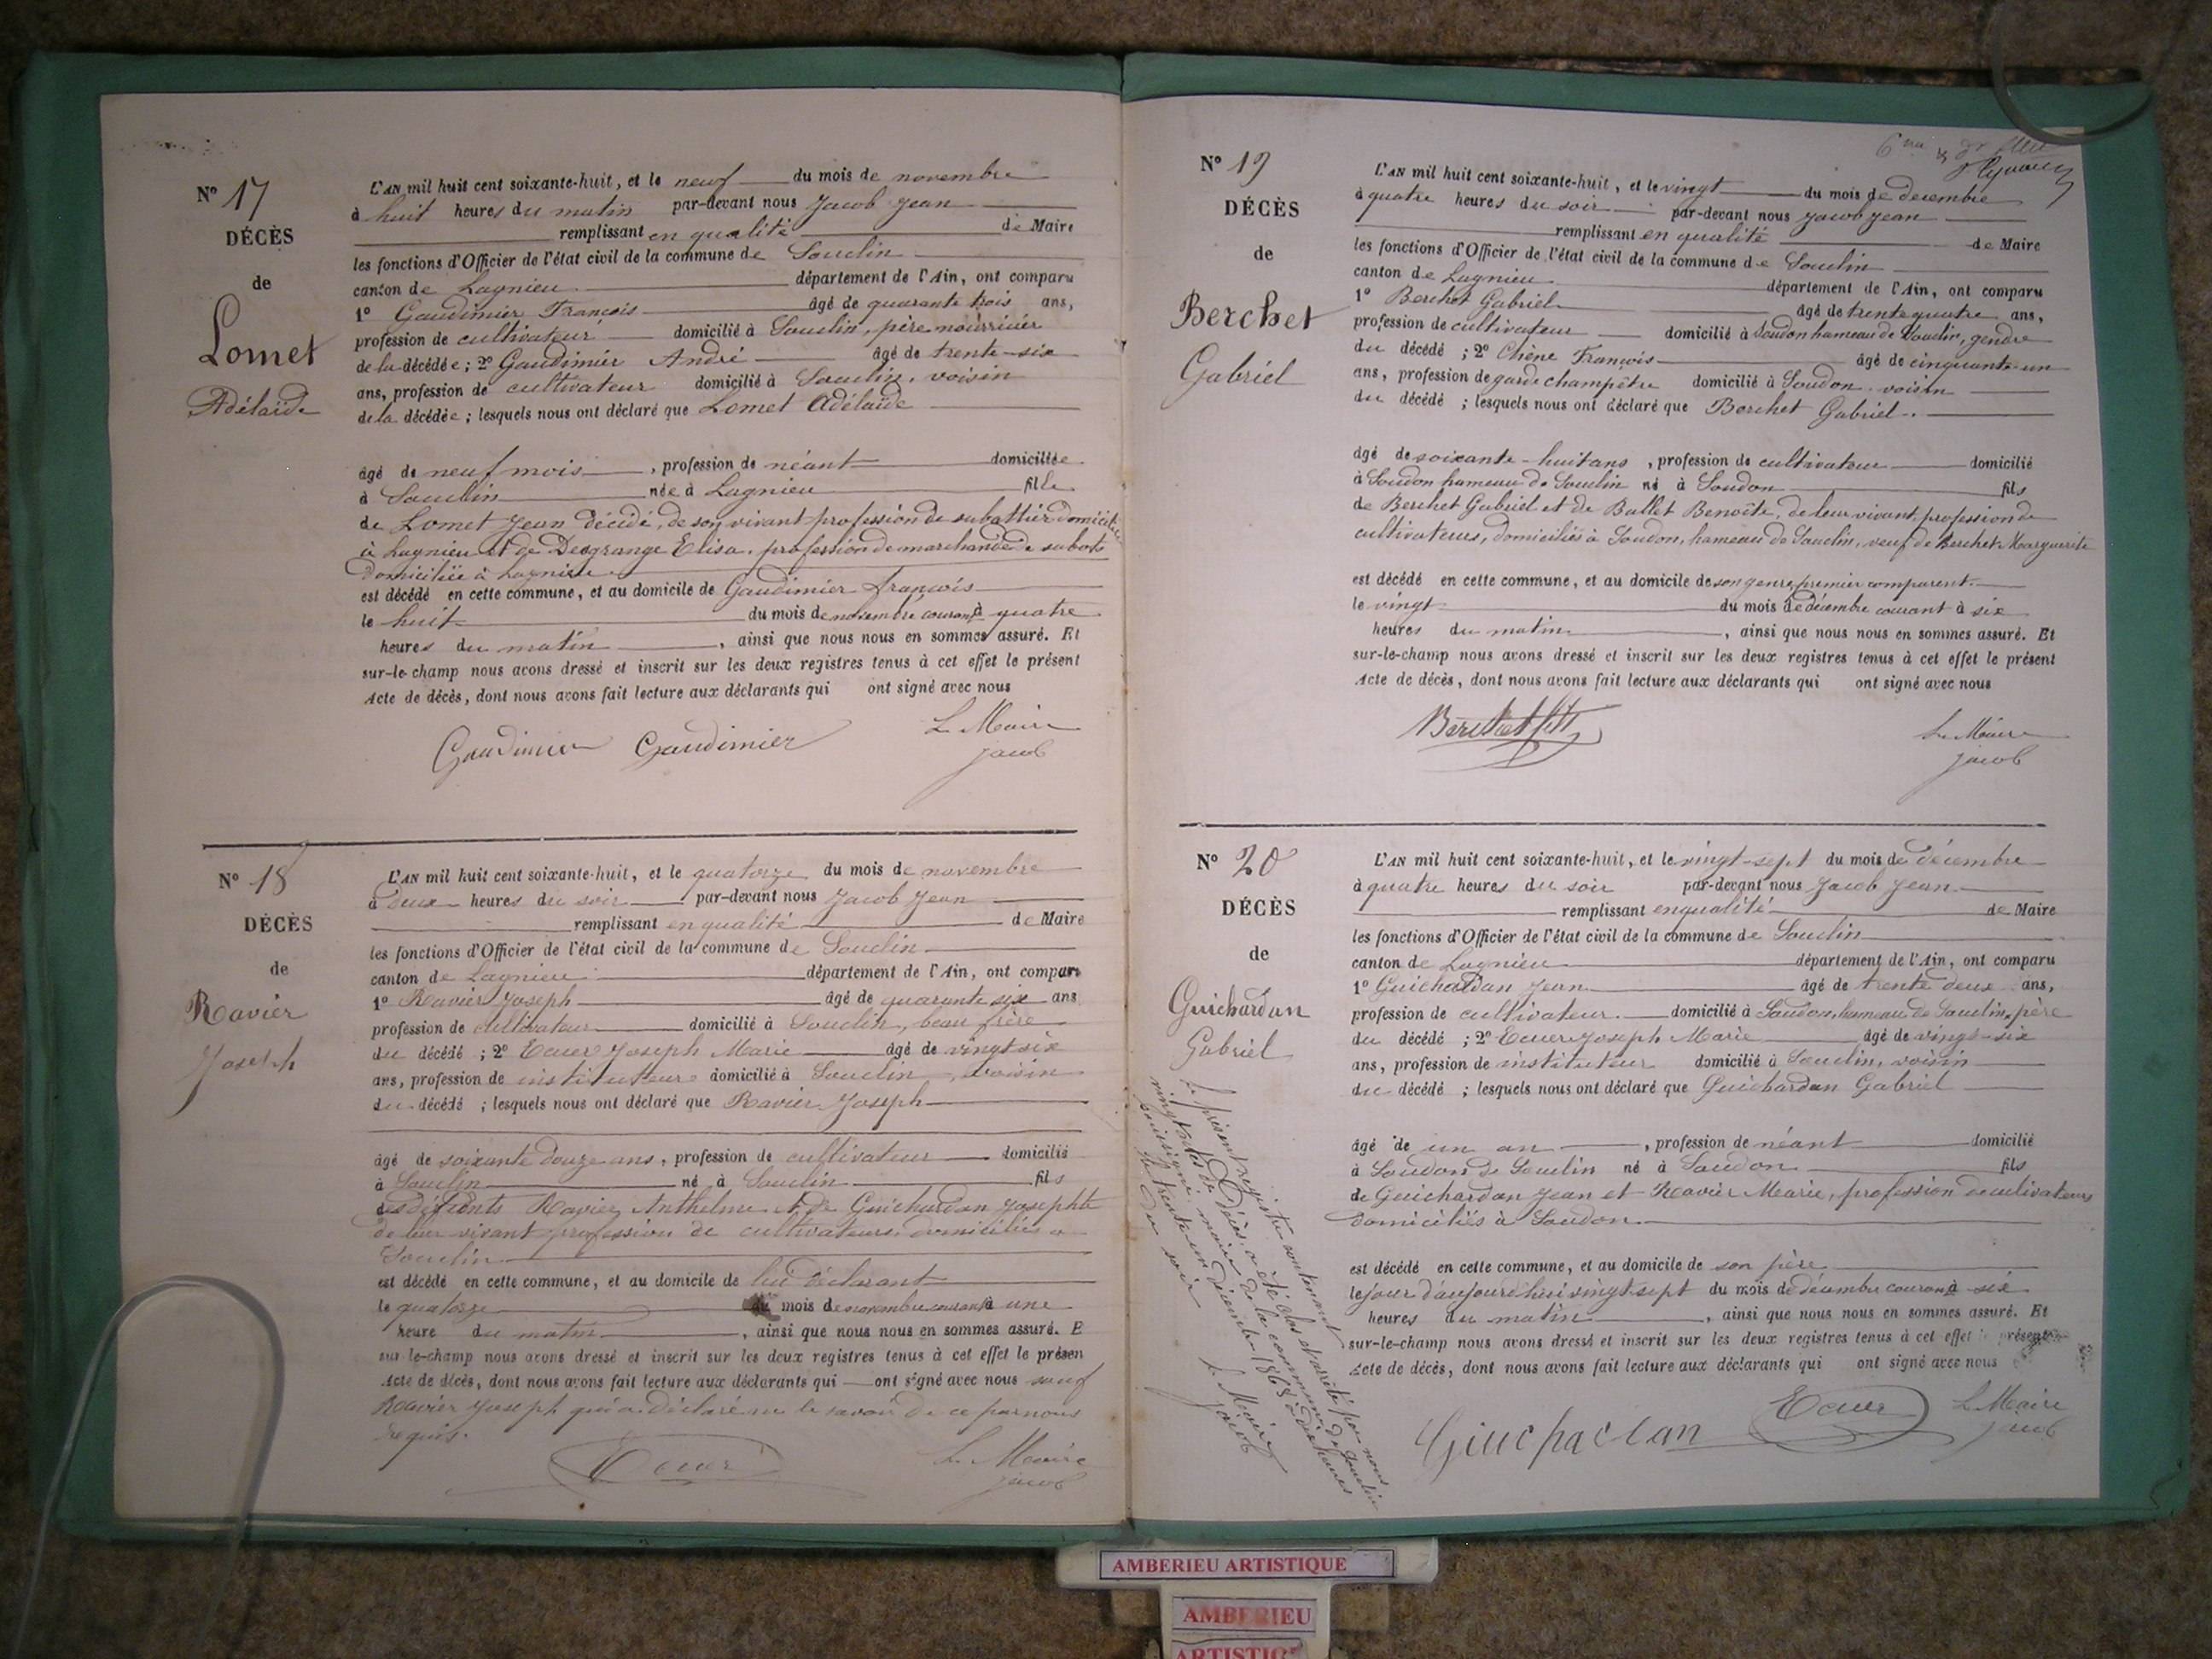 N° 17
DÉCÈS
de
Lomet
Adélaïde
L'AN mil huit cent soixante-huit, et le neuf du mois de novembre
à huit heures du matin par-devant nous Jacob Jean
remplissant en qualité de Maire
les fonctions d'Officier de l'état civil de la commune de Souclin
canton de Lagnieu département de l'Ain, ont comparu
1° Gaudimier François âgé de quarante trois ans,
profession de cultivateur domicilié à Souclin, père nourricier
de la décédée ; 2° Gaudimier André âgé de trente-six
ans, profession de cultivateur domicilié à Souclin, voisin
de la décédée ; lesquels nous ont déclaré que Lomet Adélaïde
âgé de neuf mois, profession de néant domiciliée
à Souclin née à Lagnieu fille
de Lomet Jean décédé, de son vivant profession de sabottier domicilié
à Lagnieu et de Degrange Elisa, profession de marchande de sabots
domiciliée à Lagnieu
est décédé en cette commune, et au domicile de Gaudimier François
le huit du mois de novembre courant à quatre
heures du matin, ainsi que nous nous en sommes assuré. Et
sur-le-champ nous avons dressé et inscrit sur les deux registres tenus à cet effet le présent
Acte de décès, dont nous avons fait lecture aux déclarants qui ont signé avec nous
Gaudimier Gaudimier Le Maire
Jacob
N° 18
DÉCÈS
de
Ravier
Joseph
L'AN mil huit cent soixante-huit, et le quatorze du mois de novembre
à deux heures du soir par-devant nous Jacob Jean
remplissant en qualité de Maire
les fonctions d'Officier de l'état civil de la commune de Souclin
canton de Lagnieu département de l'Ain, ont comparu
1° Ravier Joseph âgé de quarante six ans
profession de cultivateur domicilié à Souclin, beau frère
du décédé ; 2° Joseph Marie âgé de vingt six
ans, profession de instituteur domicilié à Souclin, voisin
du décédé ; lesquels nous ont déclaré que Ravier Joseph
âgé de soixante douze ans, profession de cultivateur domicilié
à Souclin né à Souclin fils
des défunts Ravier Anthelme et de Guichardan Josephte
de leur vivant profession de cultivateurs, domiciliés à
Souclin
est décédé en cette commune, et au domicile de lui déclarant
le quatorze du mois de novembre courant à une
heure du matin, ainsi que nous nous en sommes assuré. E
sur-le-champ nous avons dressé et inscrit sur les deux registres tenus à cet effet le présen
Acte de décès, dont nous avons fait lecture aux déclarants qui ont signé avec nous sauf
Ravier Joseph qui a déclaré ne le savoir de ce par nous
requis.
Le Maire
Jacob
N° 19
DÉCÈS
de
Berchet
Gabriel
L'AN mil huit cent soixante-huit, et le vingt du mois de decembre
à quatre heures du soir par-devant nous Jacob Jean
remplissant en qualité de Maire
les fonctions d'Officier de l'état civil de la commune de Souclin
canton de Lagnieu département de l'Ain, ont comparu
1° Berchet Gabriel âgé de trente quatre ans,
profession de cultivateur domicilié à Soudon hameau de Souclin, gendre
du décédé ; 2° Chêne François âgé de cinquante-un
ans, profession de garde champêtre domicilié à Soudon voisin
du décédé ; lesquels nous ont déclaré que Berchet Gabriel.
âgé de soixante-huit ans, profession de cultivateur domicilié
à Soudon hameau de Souclin né à Soudon fils
de Berchet Gabriel et de Ballet Benoîte, de leur vivant profession de
cultivateurs, domiciliés à Soudon, hameau de Souclin, veuf de Berchet Marguerite
est décédé en cette commune, et au domicile de son genre premier comparent
le vingt du mois de décembre courant à six
heures du matin, ainsi que nous nous en sommes assuré. Et
sur-le-champ nous avons dressé et inscrit sur les deux registres tenus à cet effet le présent
Acte de décès, dont nous avons fait lecture aux déclarants qui ont signé avec nous
Berchet fils Le Maire
Jacob
N° 20
DÉCÈS
de
Guichardan
Gabriel
L'AN mil huit cent soixante-huit, et le vingt-sept du mois de décembre
à quatre heures du soir par-devant nous Jacob Jean
remplissant en qualité de Maire
les fonctions d'Officier de l'état civil de la commune de Souclin
canton de Lagnieu département de l'Ain, ont comparu
1° Guichardan Jean âgé de trente deux ans,
profession de cultivateur domicilié à Soudon, hameau de Souclin, père
du décédé ; 2° Joseph Marie âgé de vingt-six
ans, profession de instituteur domicilié à Souclin, voisin
du décédé ; lesquels nous ont déclaré que Guichardan Gabriel
âgé de un an, profession de néant domicilié
à Soudon de Souclin né à Soudon fils
de Guichardan Jean et Ravier Marie, profession de cultivateurs
domiciliés à Soudon
est décédé en cette commune, et au domicile de son père
le jour d'aujourd'hui vingt-sept du mois de décembre courant à six
heures du matin, ainsi que nous nous en sommes assuré. Et
sur-le-champ nous avons dressé et inscrit sur les deux registres tenus à cet effet le présent
Acte de décès, dont nous avons fait lecture aux déclarants qui ont signé avec nous
Guichardan Le Maire
Jacob
le présent registre contenant
vingt actes de Décès, a été clos et arrêté par nous
soussigné maire de la commune de Souclin
le trente-un décembre 1868 à dix heures
du soir
Le Maire
Jacob
AMBERIEU ARTISTIQUE
AMBERIEU
ARTISTIQ